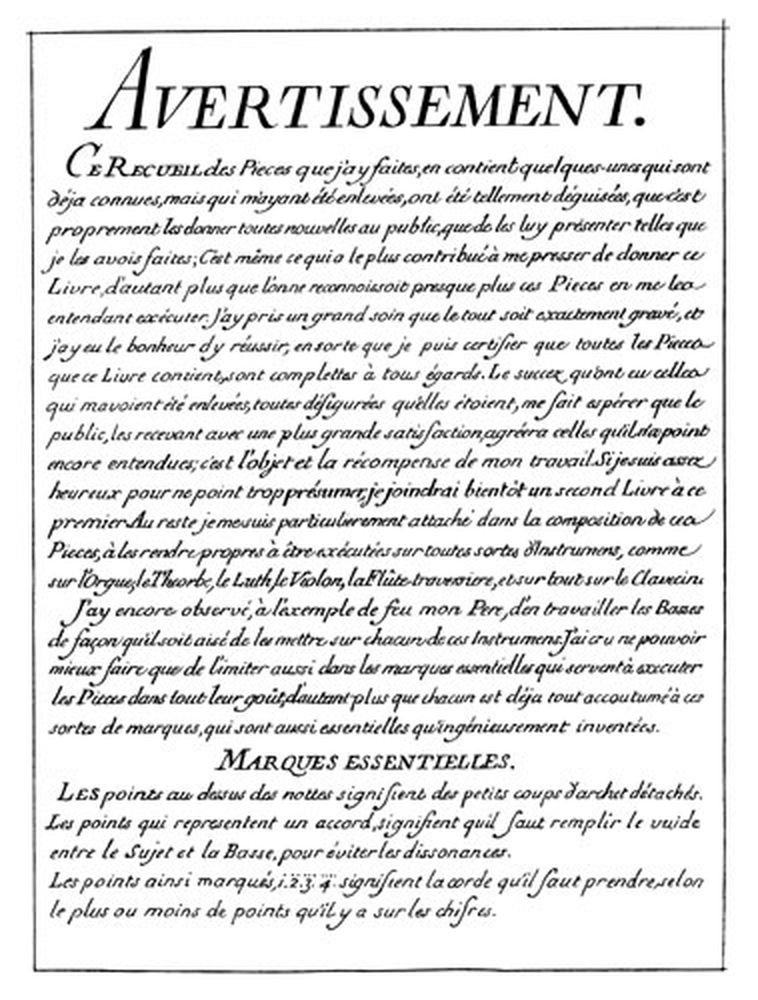 AVERTISSEMENT.
CE RECUEIL des Pieces que j'ay faites, en contient quelques-unes qui sont
déja connues, mais qui m'ayant été enlevées, ont été tellement déguisées, que c'est
proprement les donner toutes nouvelles au public, que de les luy présenter telles que
je les avois faites; C'est même ce qui a le plus contribué à me presser de donner ce
Livre, d'autant plus que l'onne reconnoissoit presque plus ces Pieces en me les
entendant exécuter. J'ay pris un grand soin que le tout soit exactement gravé, et
j'ay eu le bonheur d'y réussir, ensorte que je puis certifier que toutes les Pieces
que ce Livre contient, sont complettes à tous égards. Le succez qu'ont eu celles
qui m'avoient été enlevées, toutes défigurées qu'elles étoient, me fait espérer que le
public, les recevant avec une plus grande satisfaction, agréera celles qu'il n'a point
encore entendues; c'est l'objet et la récompense de mon travail. Si je suis assez
heureux pour ne point trop présumer, je joindrai bientôt un second Livre à ce
premier. Au reste je me suis particulierement attaché dans la composition de ces
Pieces, à les rendre propres à être exécutées sur toutes sortes d'Instrumens, comme
sur l'Orgue, le Theorbe, le Luth, le Violon, la Flûte traversiere, et sur tout sur le Clavecin.
J'ay encore observé, à l'exemple de feu mon Pere, d'en travailler les Basses
de façon qu'il soit aisé de les mettre sur chacun de ces Instrumens. J'ai cru ne pouvoir
mieux faire que de l'imiter aussi dans les marques essentielles qui servent à executer
les Pieces dans tout leur goût, d'autant plus que chacun est déja tout accoutumé à ces
sortes de marques, qui sont aussi essentielles qu'ingénieusement inventées.
MARQUES ESSENTIELLES.
LES points au dessus des nottes signifient des petits coups d'archet détachés.
Les points qui representent un accord, signifient qu'il faut remplir le vuide
entre le Sujet et la Basse, pour éviter les dissonances.
Les points ainsi marqués, 1. 2. 3. 4. signifient la corde qu'il faut prendre, selon
le plus ou moins de points qu'il y a sur les chifres.